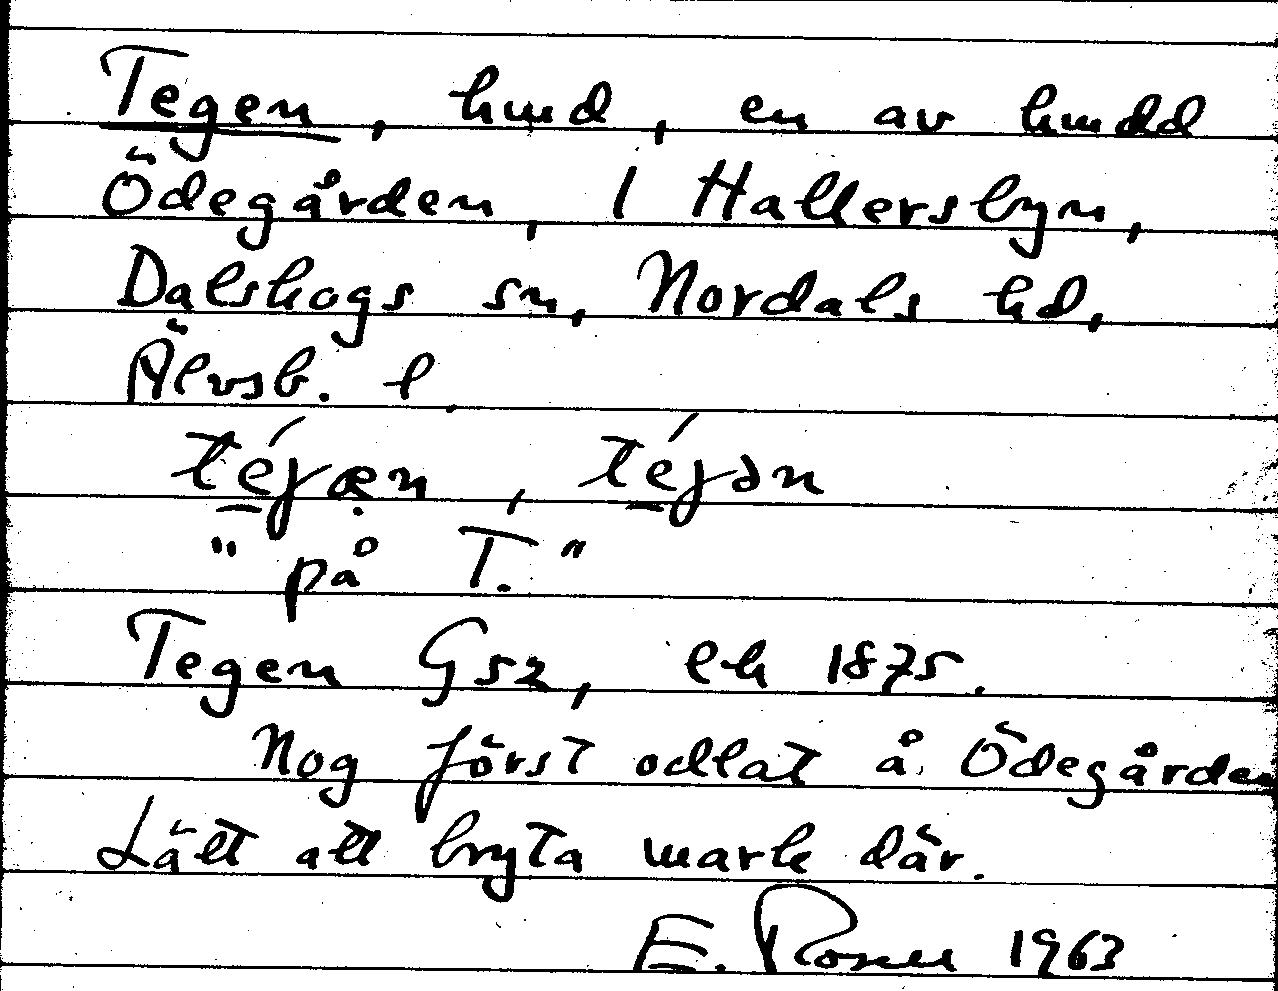 Tegen, hmd, en av hmdd
Ödegården, 1 Hallersbyn,
Dalskogs sn, Nordals hd,
Älvsb. l.
téjæn, téjən
"på T."
Tegen Gsz, ek 1875.
Nog först odlat å Ödegården
Lätt att bryta mark där.
E. 1963